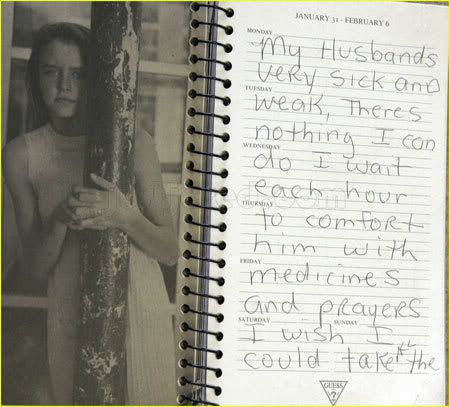 JANUARY 31 - FEBRUARY 6
MONDAY
My Husbands
very sick and
TUESDAY
weak, There's
nothing I can
WEDNESDAY
do I wait
each hour
THURSDAY
to comfort
him with
FRIDAY
medicines
and prayers
SATURDAY SUNDAY
I wish I
could take the
GUESS
?